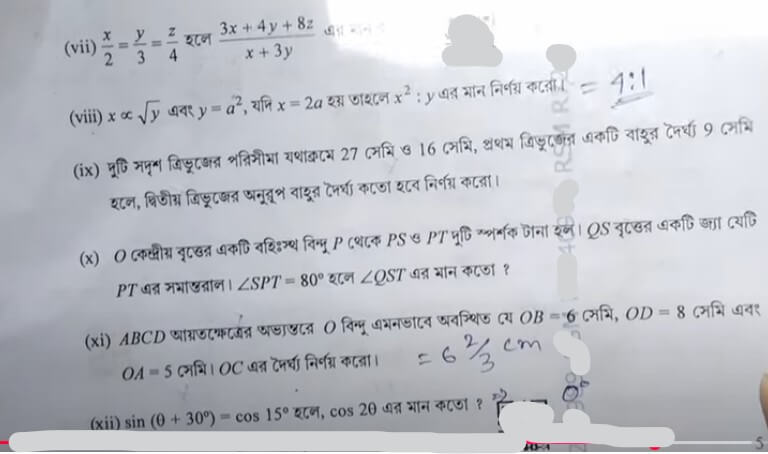 (vii) x/2 = y/3 = z/4 হলে (3x + 4y + 8z)/(x + 3y) এর মান
(viii) x ∝ √y এবং y = a², যদি x = 2a হয় তাহলে x² : y এর মান নির্ণয় করো। = 4:1
(ix) দুটি সদৃশ ত্রিভুজের পরিসীমা যথাক্রমে 27 সেমি ও 16 সেমি, প্রথম ত্রিভুজের একটি বাহুর দৈর্ঘ্য 9 সেমি
হলে, দ্বিতীয় ত্রিভুজের অনুরূপ বাহুর দৈর্ঘ্য কতো হবে নির্ণয় করো।
(x) O কেন্দ্রীয় বৃত্তের একটি বহিঃস্থ বিন্দু P থেকে PS ও PT দুটি স্পর্শক টানা হল। QS বৃত্তের একটি জ্যা যেটি
PT এর সমান্তরাল। ∠SPT = 80° হলে ∠QST এর মান কতো ?
(xi) ABCD আয়তক্ষেত্রের অভ্যন্তরে O বিন্দু এমনভাবে অবস্থিত যে OB = 6 সেমি, OD = 8 সেমি এবং
OA = 5 সেমি। OC এর দৈর্ঘ্য নির্ণয় করো। = 6 2/3 cm
(xii) sin (θ + 30°) = cos 15° হলে, cos 2θ এর মান কতো ?
5